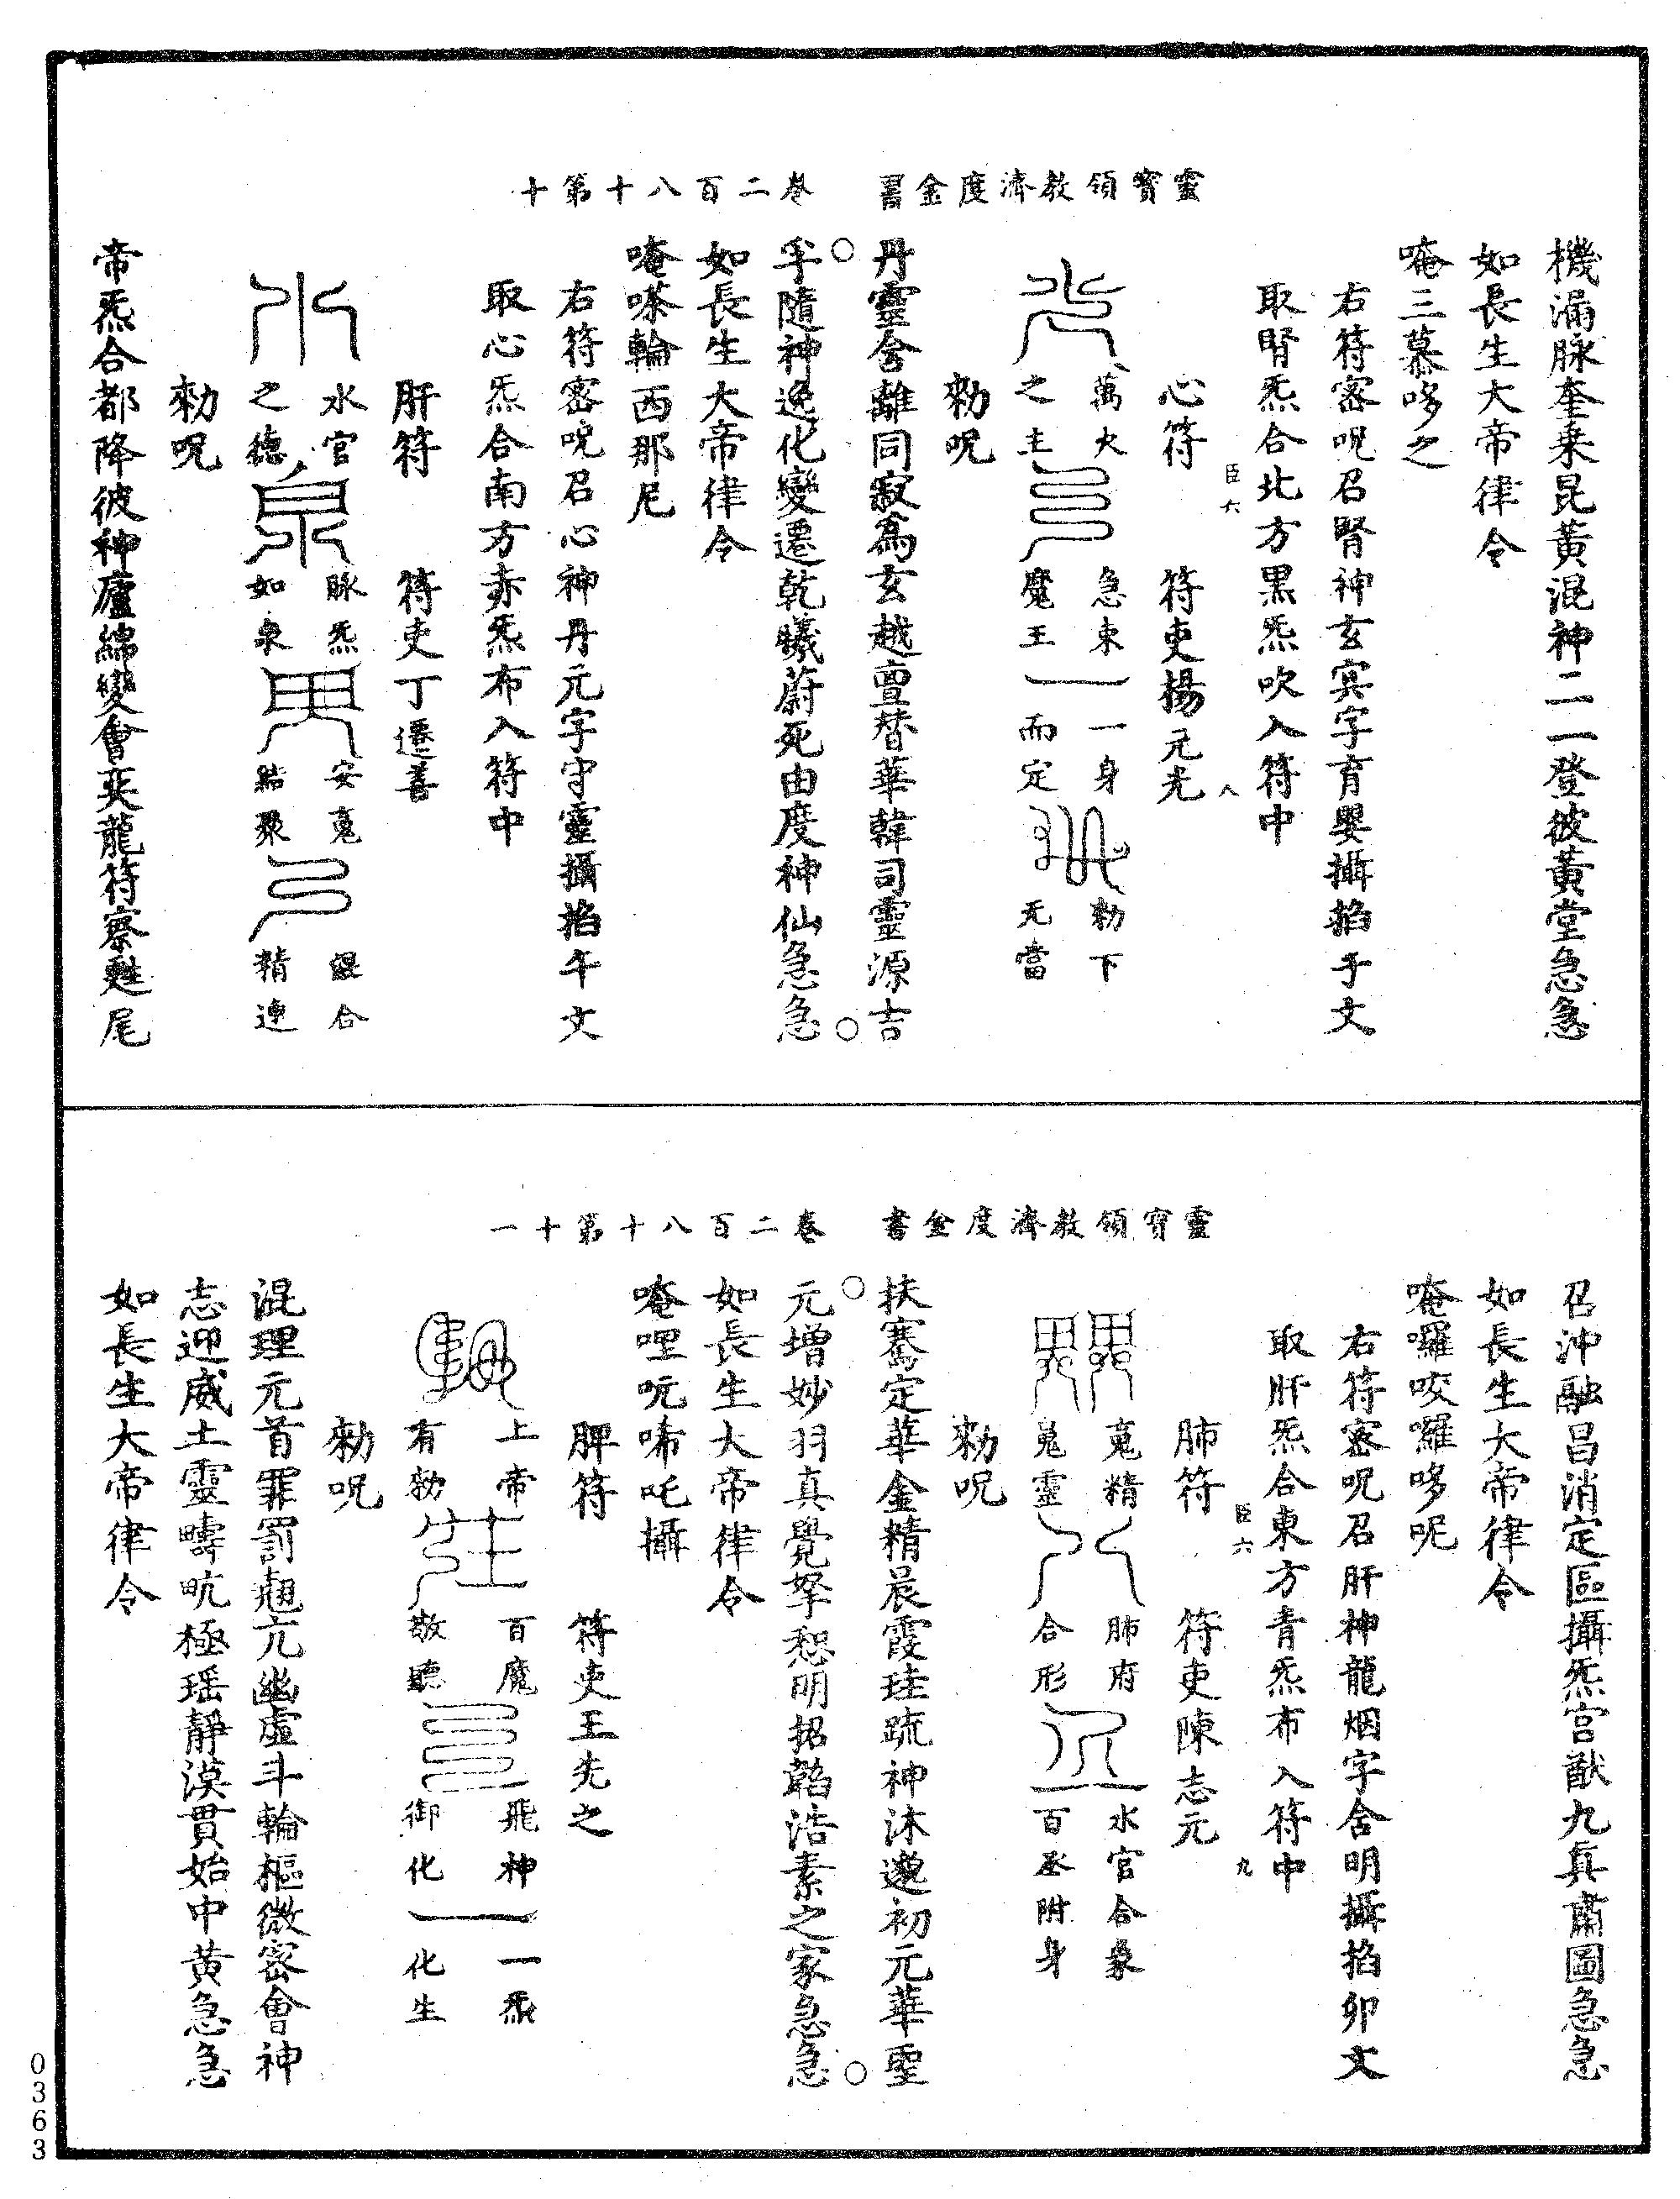 靈寶領教濟度金書　卷二百八十第十
機漏脉奎乗昆黃混神二一登彼黃堂急急
如長生大帝律令
唵三慕哆之
右符密呪召腎神玄冥字育嬰攝掐子文
取腎炁合北方黑炁吹入符中
臣六　八
心符　符吏楊元光
萬火之主　急束魔王　一身而定　勑下无當
勑呪
丹靈含離同寂為玄越亶替華韓司靈源吉
平隨神逸化變遷乾曦蔚死由度神仙急急
如長生大帝律令
唵嗏輪西那尼
右符密呪召心神丹元字守靈攝掐午文
取心炁合南方赤炁布入符中
肝符　符吏丁遷善
水官之德　脉炁如泉　安䰟結聚　混合精連
勑呪
帝炁合都降彼神廬綿變會奕龍符察甦尾
靈寶領教濟度金書　卷二百八十第十一
召沖融昌消定區攝炁宫猷九真肅圖急急
如長生大帝律令
唵囉咬囉哆呢
右符密呪召肝神龍烟字含明攝掐卯文
取肝炁合東方青炁布入符中
臣六　九
肺符　符吏陳志元
䰟精䰟靈　肺府合形　水官合象　百丞附身
勑呪
扶騫定華金精晨霞珪䟽神沐邈初元華聖
元增妙羽真覺拏恕明招韜浩素之家急急
如長生大帝律令
唵哩吭唏吒攝
脾符　符吏王先之
上帝有勑　百魔敬聽　飛神御化　一炁化生
勑呪
混理元首罪罰翹亢幽虛斗輪樞微密會神
志迎威土靈疇畂極瑶靜漠貫始中黄急急
如長生大帝律令
0363